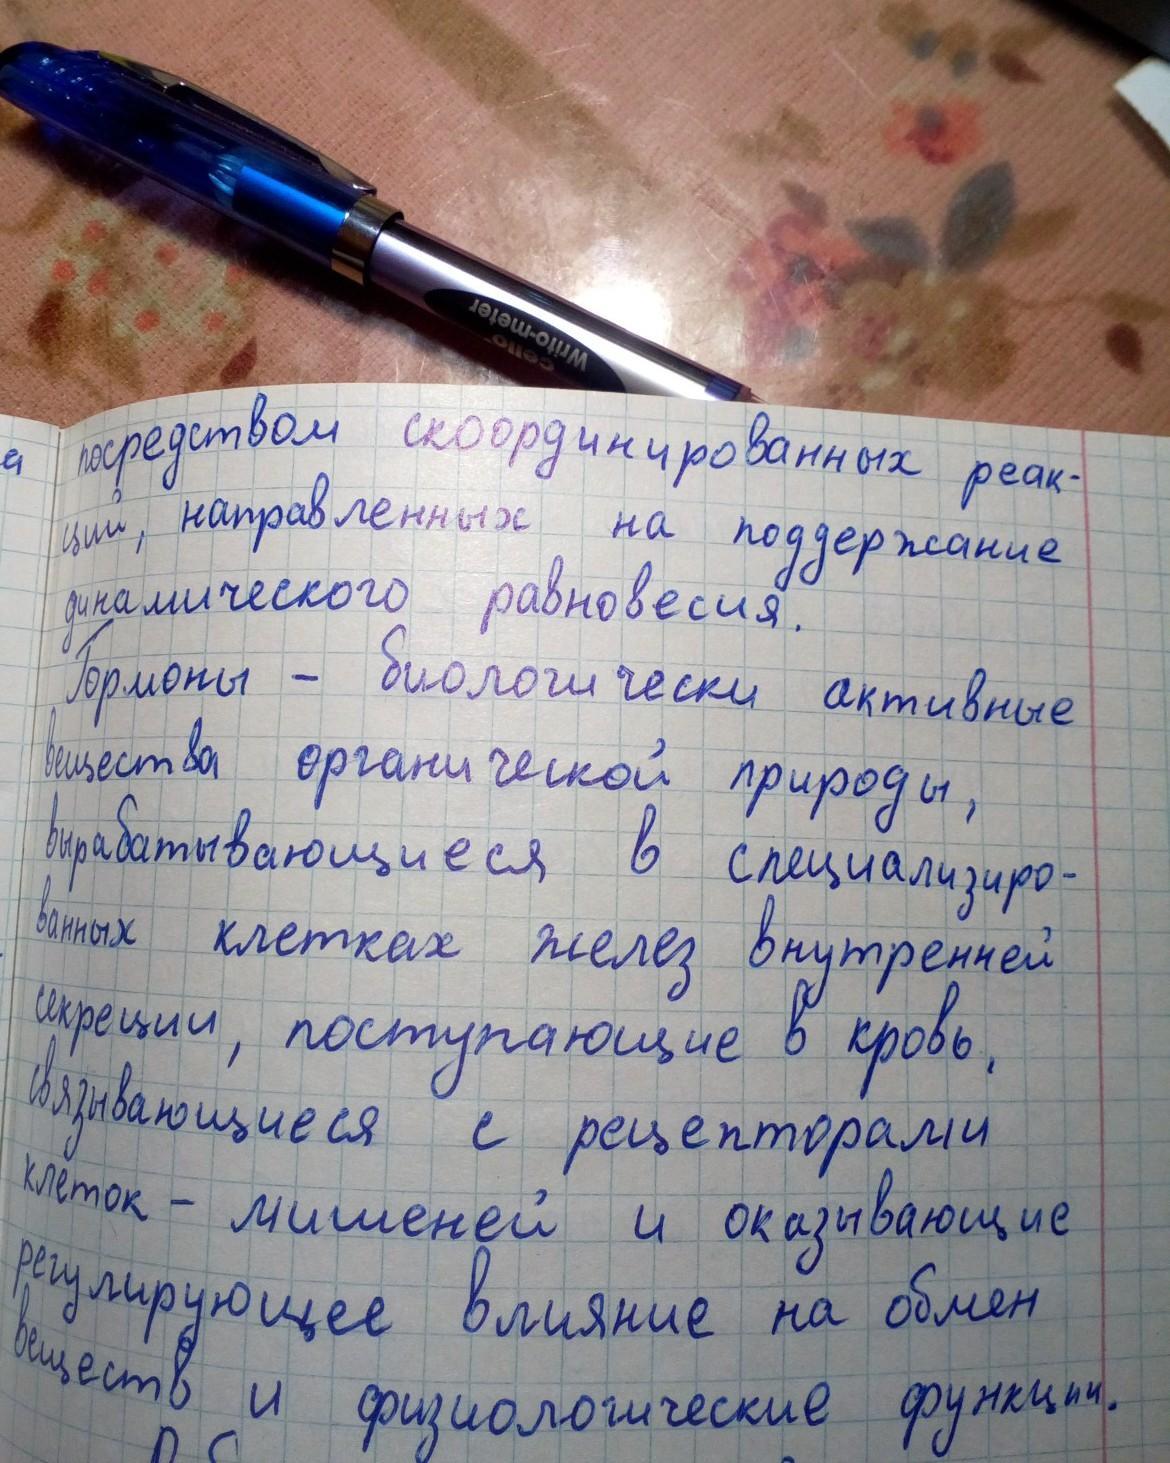 cello
Writo-meter
посредством скоординированных реак-
ций, направленных на поддержание
динамического равновесия.
Гормоны - биологически активные
вещества органической природы,
вырабатывающиеся в специализиро-
ванных клетках желез внутренней
секреции, поступающие в кровь,
связывающиеся с рецепторами
клеток - мишеней и оказывающие
регулирующее влияние на обмен
веществ и физиологические функции.